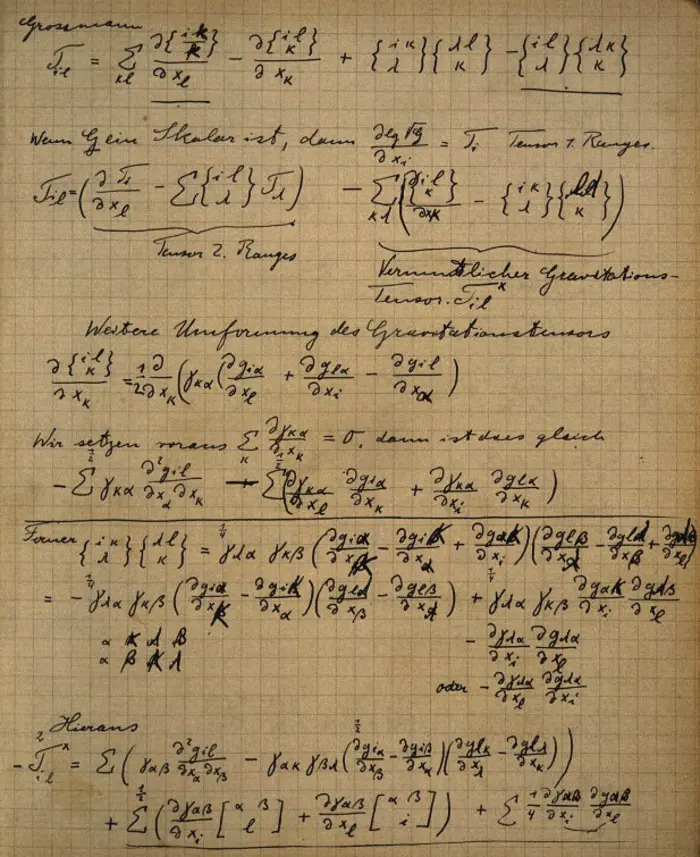 Grossmann
T_il = Σ_κl ∂{i κ / κ}/∂x_l − ∂{i l / κ}/∂x_κ + {i κ / λ}{λ l / κ} − {i l / λ}{λ κ / κ}
Wenn G ein Skalar ist, dann ∂lg√g/∂x_i = T_i Tensor 1. Ranges.
T_il = (∂T_i/∂x_l − Σ{i l / λ} T_λ) − Σ_κλ (∂{i l / κ}/∂x_κ − {i κ / λ}{λ l / κ})
Tensor 2. Ranges
Vermutlicher Gravitations-
Tensor. T_il^x
Weitere Umformung des Gravitationstensors
∂{i l / κ}/∂x_κ = 1/2 ∂/∂x_κ (γ_κα (∂g_iα/∂x_l + ∂g_lα/∂x_i − ∂g_il/∂x_α)
Wir setzen voraus Σ_κ ∂γ_κα/∂x_κ = 0, dann ist dies gleich
− 1/2 Σ γ_κα ∂²g_il/∂x_α ∂x_κ − 1/2 Σ(∂γ_κα/∂x_l ∂g_iα/∂x_κ + ∂γ_κα/∂x_i ∂g_lα/∂x_κ)
Ferner {i κ / λ}{λ l / κ} = 1/4 γ_λα γ_κβ (∂g_iα/∂x_κ − ∂g_iκ/∂x_α + ∂g_ακ/∂x_i)(∂g_lβ/∂x_λ − ∂g_lλ/∂x_β + ∂g_λβ/∂x_l)
= − 1/4 γ_λα γ_κβ (∂g_iα/∂x_κ − ∂g_iκ/∂x_α)(∂g_lλ/∂x_β − ∂g_lβ/∂x_λ) + 1/4 γ_λα γ_κβ ∂g_ακ/∂x_i ∂g_λβ/∂x_l
α κ λ β
α β κ λ
− ∂γ_λα/∂x_i ∂g_λα/∂x_l
oder − ∂γ_λα/∂x_l ∂g_λα/∂x_i
Hieraus
− 2 T_il^x = Σ (γ_αβ ∂²g_il/∂x_α ∂x_β − 1/2 γ_ακ γ_βλ (∂g_iα/∂x_β − ∂g_iβ/∂x_α)(∂g_lκ/∂x_λ − ∂g_lλ/∂x_κ))
+ 1/2 Σ (∂γ_αβ/∂x_i [α β / l] + ∂γ_αβ/∂x_l [α β / i]) + Σ 1/4 ∂γ_αβ/∂x_i ∂g_αβ/∂x_l